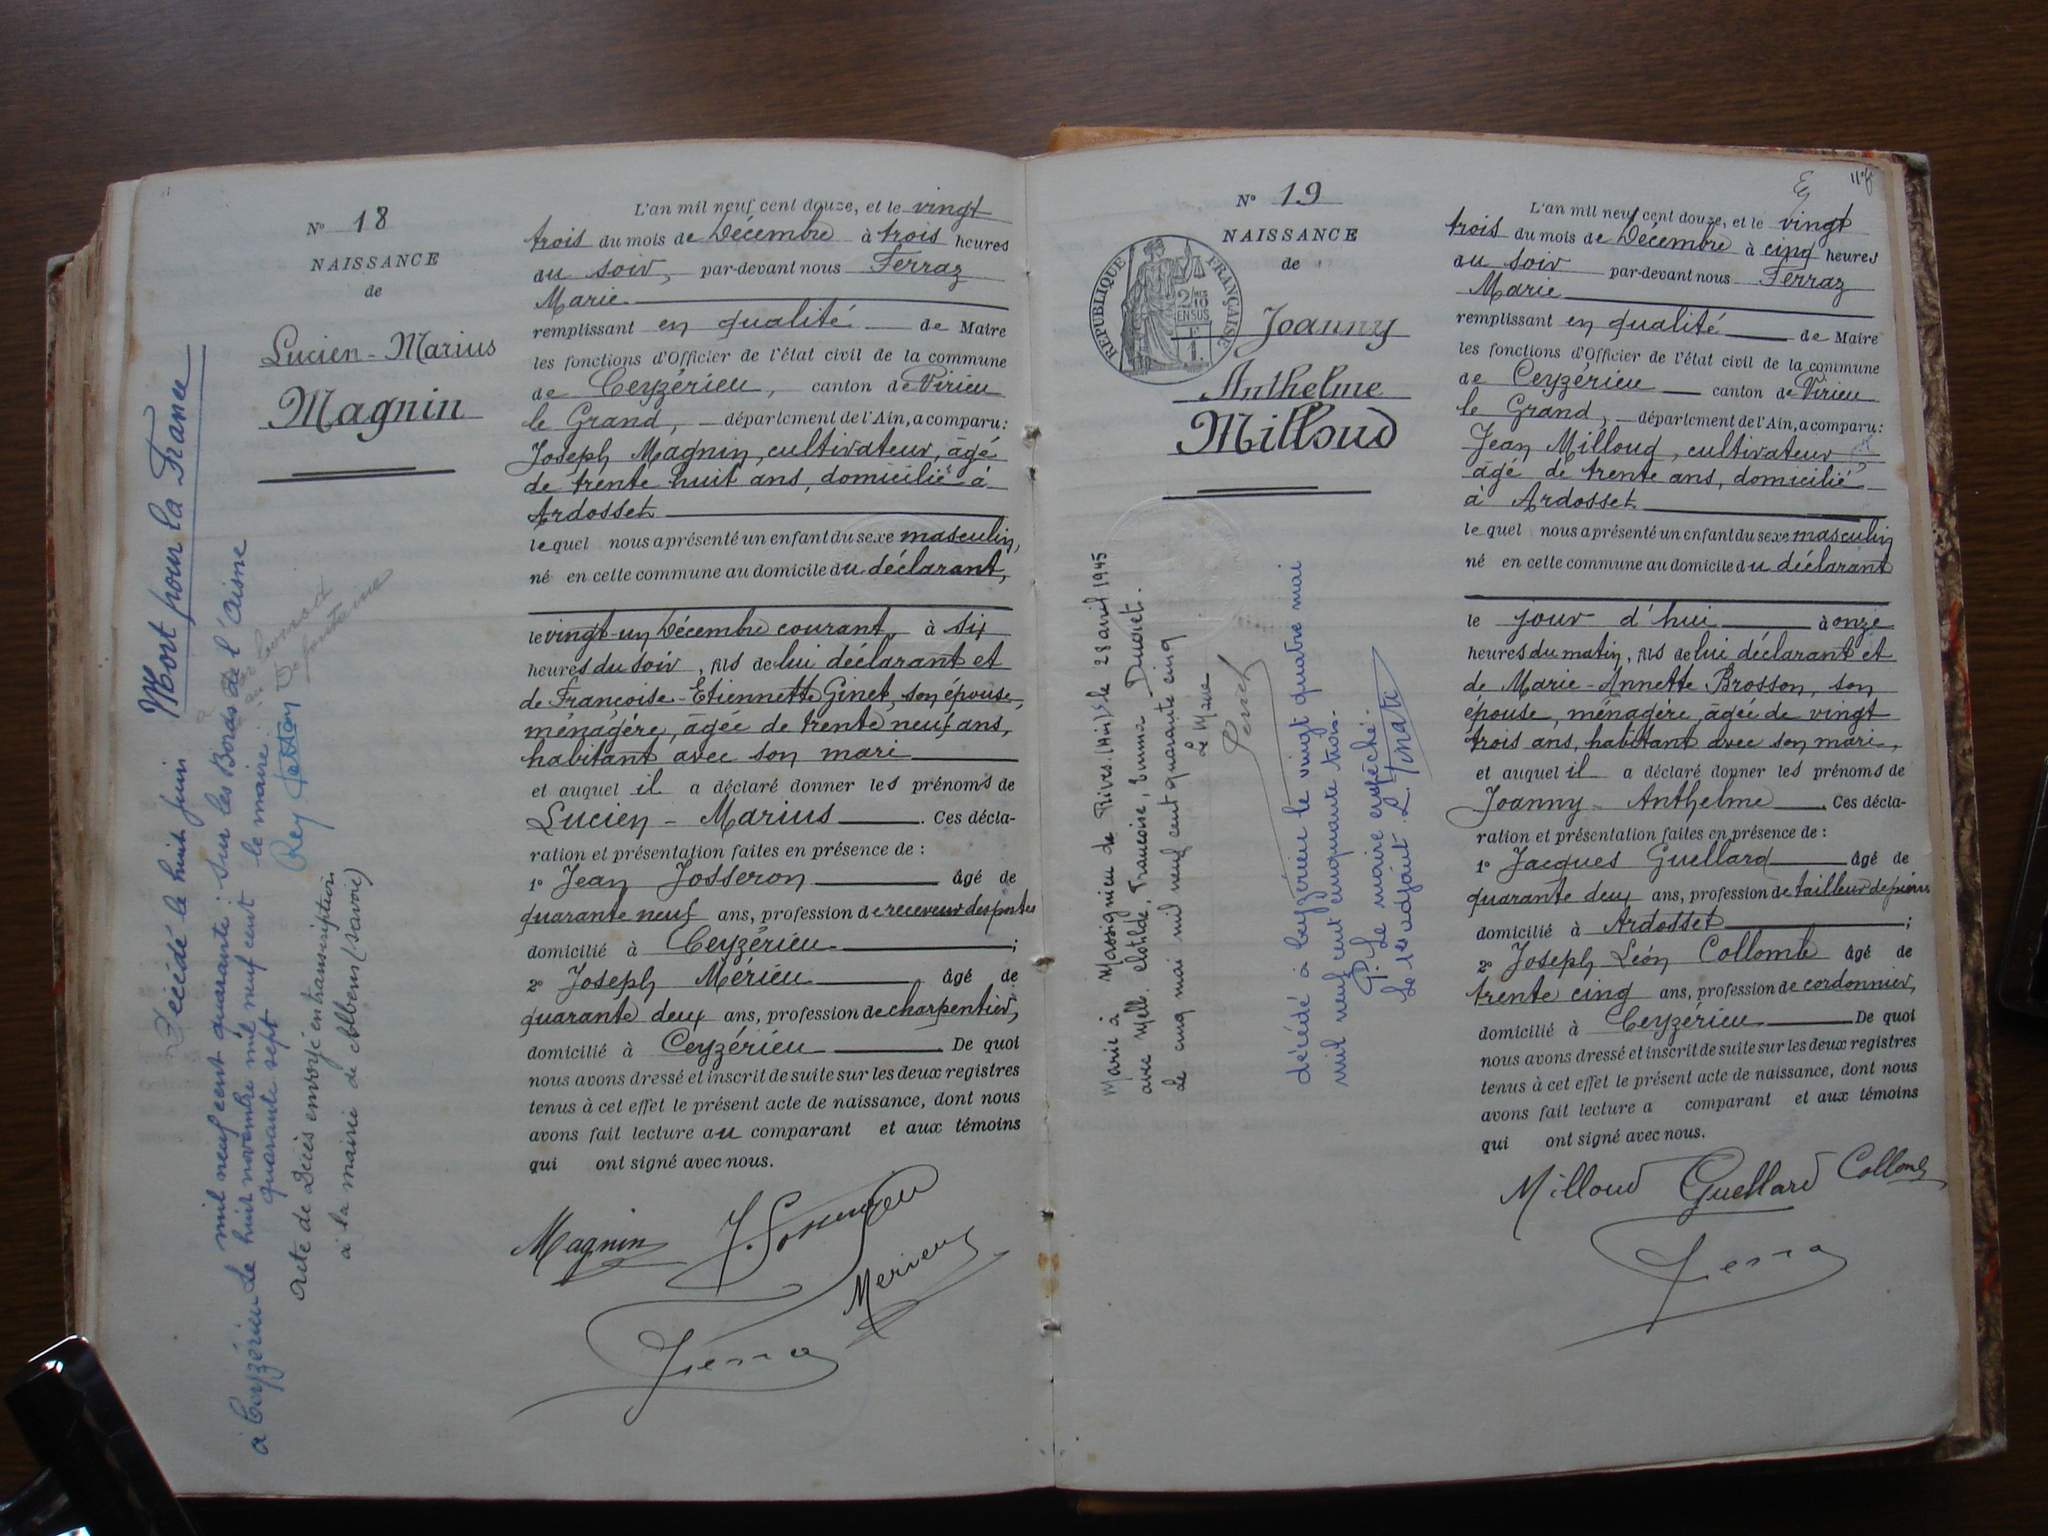 N° 18
NAISSANCE
de
Lucien - Marius
Magnin
Mort pour la France
Décédé le huit juin
mil neuf cent quarante : Sur les Bords de l'Aisne
à Ceyzérieu le huit novembre mil neuf cent
quarante sept
le maire :
Acte de Décès envoyé en transcription
à la mairie de Albens (Savoie)
L'an mil neuf cent douze, et le vingt
trois du mois de Décembre à trois heures
au soir, par-devant nous Ferraz
Marie
remplissant en qualité de Maire
les fonctions d'Officier de l'état civil de la commune
de Ceyzérieu, canton de Virieu
le Grand, département de l'Ain, a comparu :
Joseph Magnin, cultivateur, âgé
de trente huit ans, domicilié à
Ardosset
lequel nous a présenté un enfant du sexe masculin,
né en cette commune au domicile du déclarant,
le vingt-un Décembre courant à six
heures du soir, fils de lui déclarant et
de Françoise-Etiennette Ginet, son épouse,
ménagère, âgée de trente neuf ans,
habitant avec son mari
et auquel il a déclaré donner les prénoms de
Lucien - Marius. Ces décla-
ration et présentation faites en présence de :
1° Jean Josseron âgé de
quarante neuf ans, profession de receveur des postes
domicilié à Ceyzérieu ;
2° Joseph Mérieu âgé de
quarante deux ans, profession de charpentier,
domicilié à Ceyzérieu De quoi
nous avons dressé et inscrit de suite sur les deux registres
tenus à cet effet le présent acte de naissance, dont nous
avons fait lecture au comparant et aux témoins
qui ont signé avec nous.
Magnin
Merieu
N° 19
NAISSANCE
de
RÉPUBLIQUE FRANÇAISE
2/10
EN SUS
Joanny
Anthelme
Milloud
Marié à Massignieu de Rives (Ain) le 28 avril 1945
avec Melle Clotilde, Francoise, Emma Ducret.
Le cinq mai mil neuf cent quarante cinq
Le Maire
décédé à Ceyzérieu le vingt quatre mai
mil neuf cent cinquante trois.
Pr. Le maire empêché.
Le 1er adjoint
L'an mil neuf cent douze, et le vingt
trois du mois de Décembre à cinq heures
au soir par-devant nous Ferraz
Marie
remplissant en qualité de Maire
les fonctions d'Officier de l'état civil de la commune
de Ceyzérieu canton de Virieu
le Grand, département de l'Ain, a comparu :
Jean Milloud, cultivateur
âgé de trente ans, domicilié
à Ardosset
lequel nous a présenté un enfant du sexe masculin
né en cette commune au domicile du déclarant
le jour d'hui à onze
heures du matin, fils de lui déclarant et
de Marie-Annette Brosson, son
épouse, ménagère, âgée de vingt
trois ans, habitant avec son mari,
et auquel il a déclaré donner les prénoms de
Joanny - Anthelme. Ces décla-
ration et présentation faites en présence de :
1° Jacques Guellard âgé de
quarante deux ans, profession de tailleur de pierres
domicilié à Ardosset ;
2° Joseph Léon Collomb âgé de
trente cinq ans, profession de cordonnier,
domicilié à Ceyzérieu De quoi
nous avons dressé et inscrit de suite sur les deux registres
tenus à cet effet le présent acte de naissance, dont nous
avons fait lecture a comparant et aux témoins
qui ont signé avec nous.
Milloud Guellard Collomb